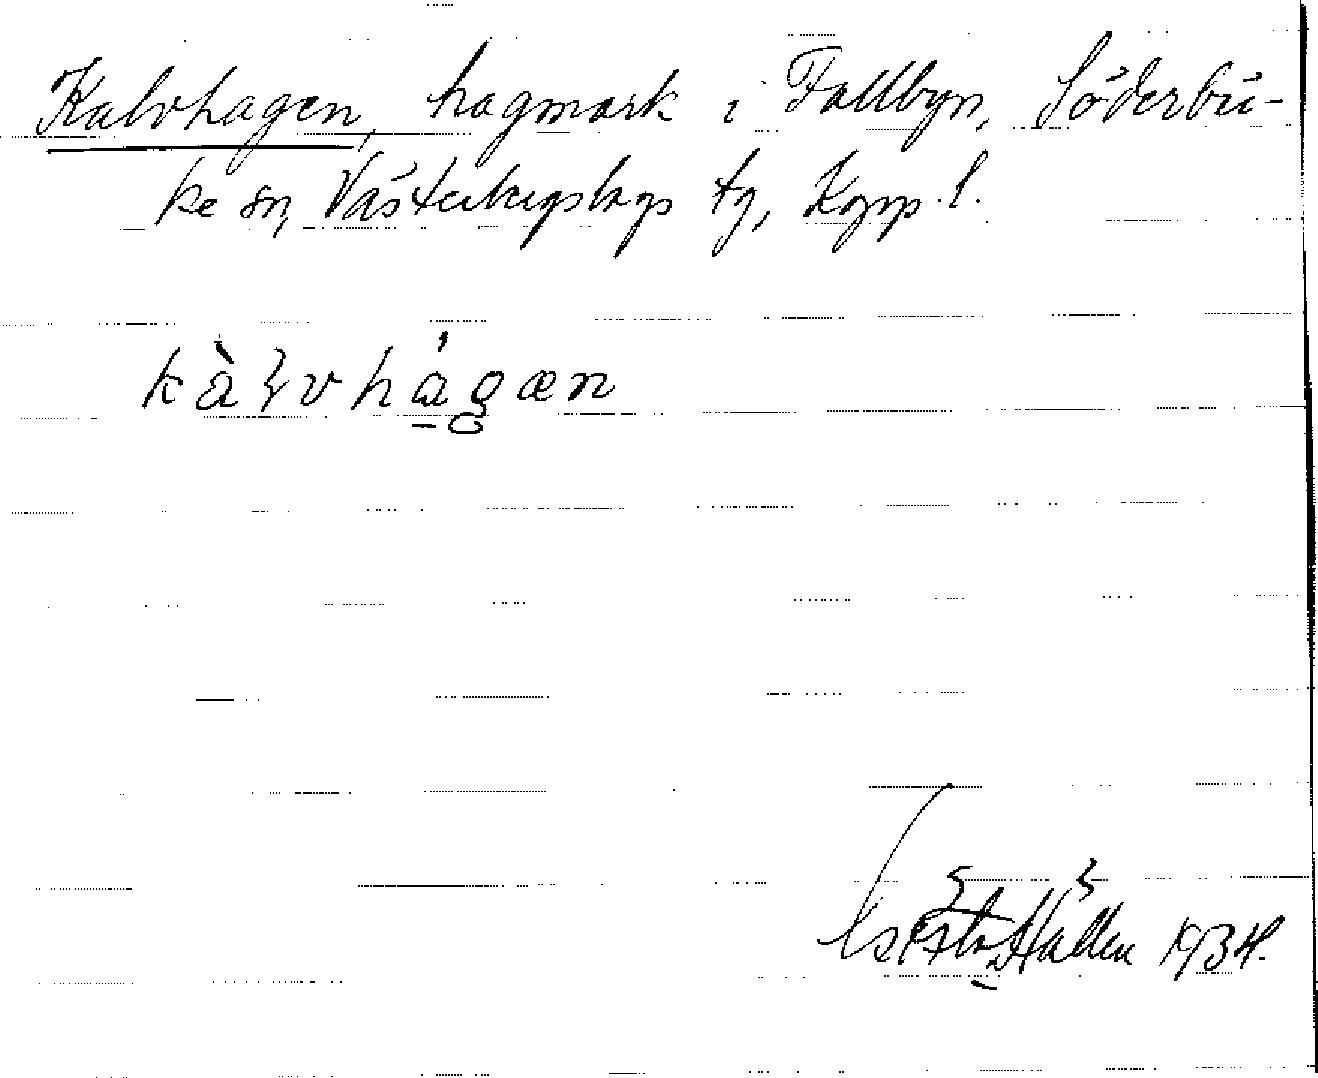 Kalvhagen, hagmark i Fallbyn, Söderbä-
ke sn, Västerbergslags tg, Kopp. l.
kàlvhágæn
Hallen 1934.